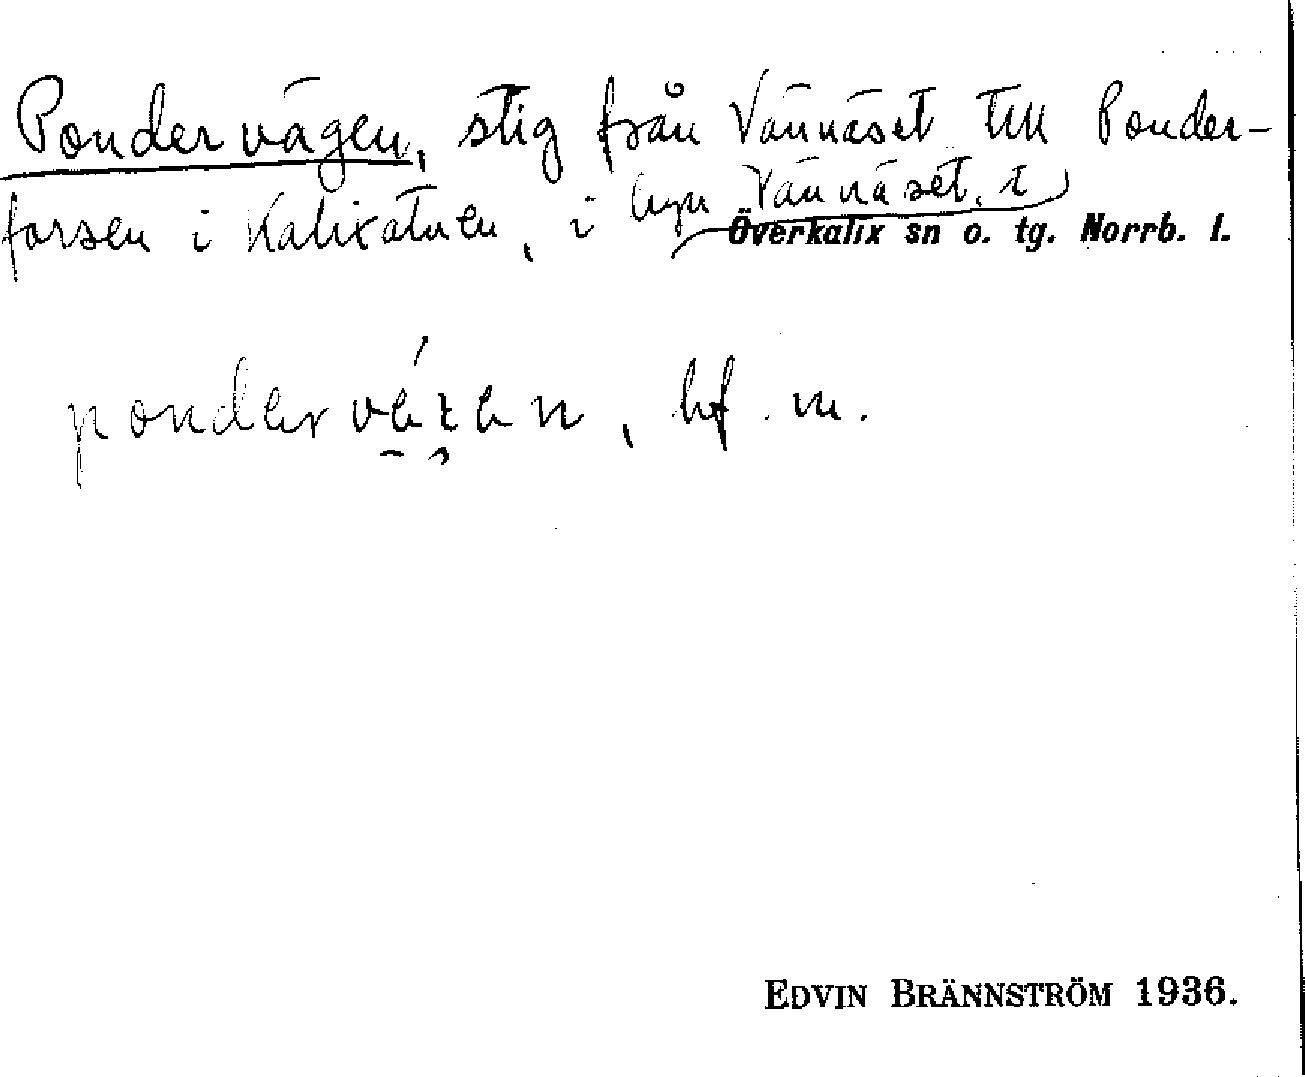 Pondervägen, stig från Vännäset till Ponder-
forsen i Kalixälven, i byn Vännäset, i
Överkalix sn o. tg. Norrb. l.
ponder, bf. m.
EDVIN BRÄNNSTRÖM 1936.